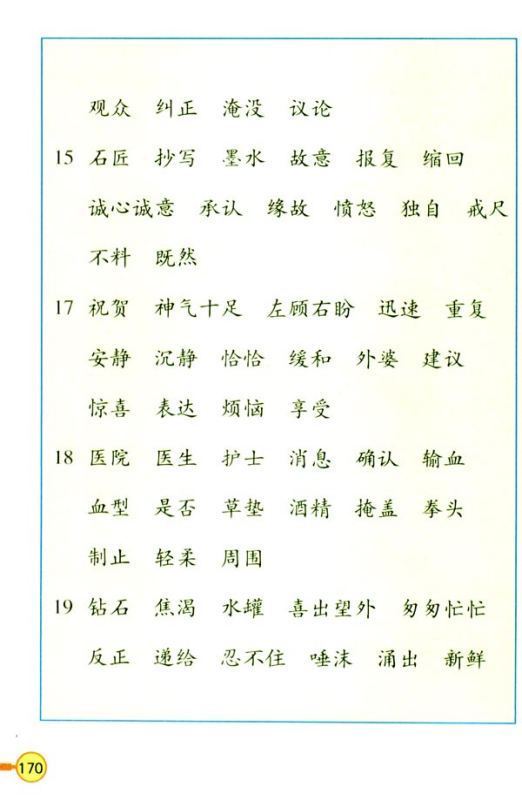 观众 纠正 淹没 议论
15 石匠 抄写 墨水 故意 报复 缩回
诚心诚意 承认 缘故 愤怒 独自 戒尺
不料 既然
17 祝贺 神气十足 左顾右盼 迅速 重复
安静 沉静 恰恰 缓和 外婆 建议
惊喜 表达 烦恼 享受
18 医院 医生 护士 消息 确认 输血
血型 是否 草垫 酒精 掩盖 拳头
制止 轻柔 周围
19 钻石 焦渴 水罐 喜出望外 匆匆忙忙
反正 递给 忍不住 唾沫 涌出 新鲜
170